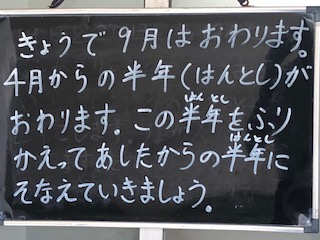 きょうで9月はおわります。
4月からの半年(はんとし)が
おわります。この半年をふり
はん とし
かえってあしたからの半年に
はんとし
そなえていきましょう。